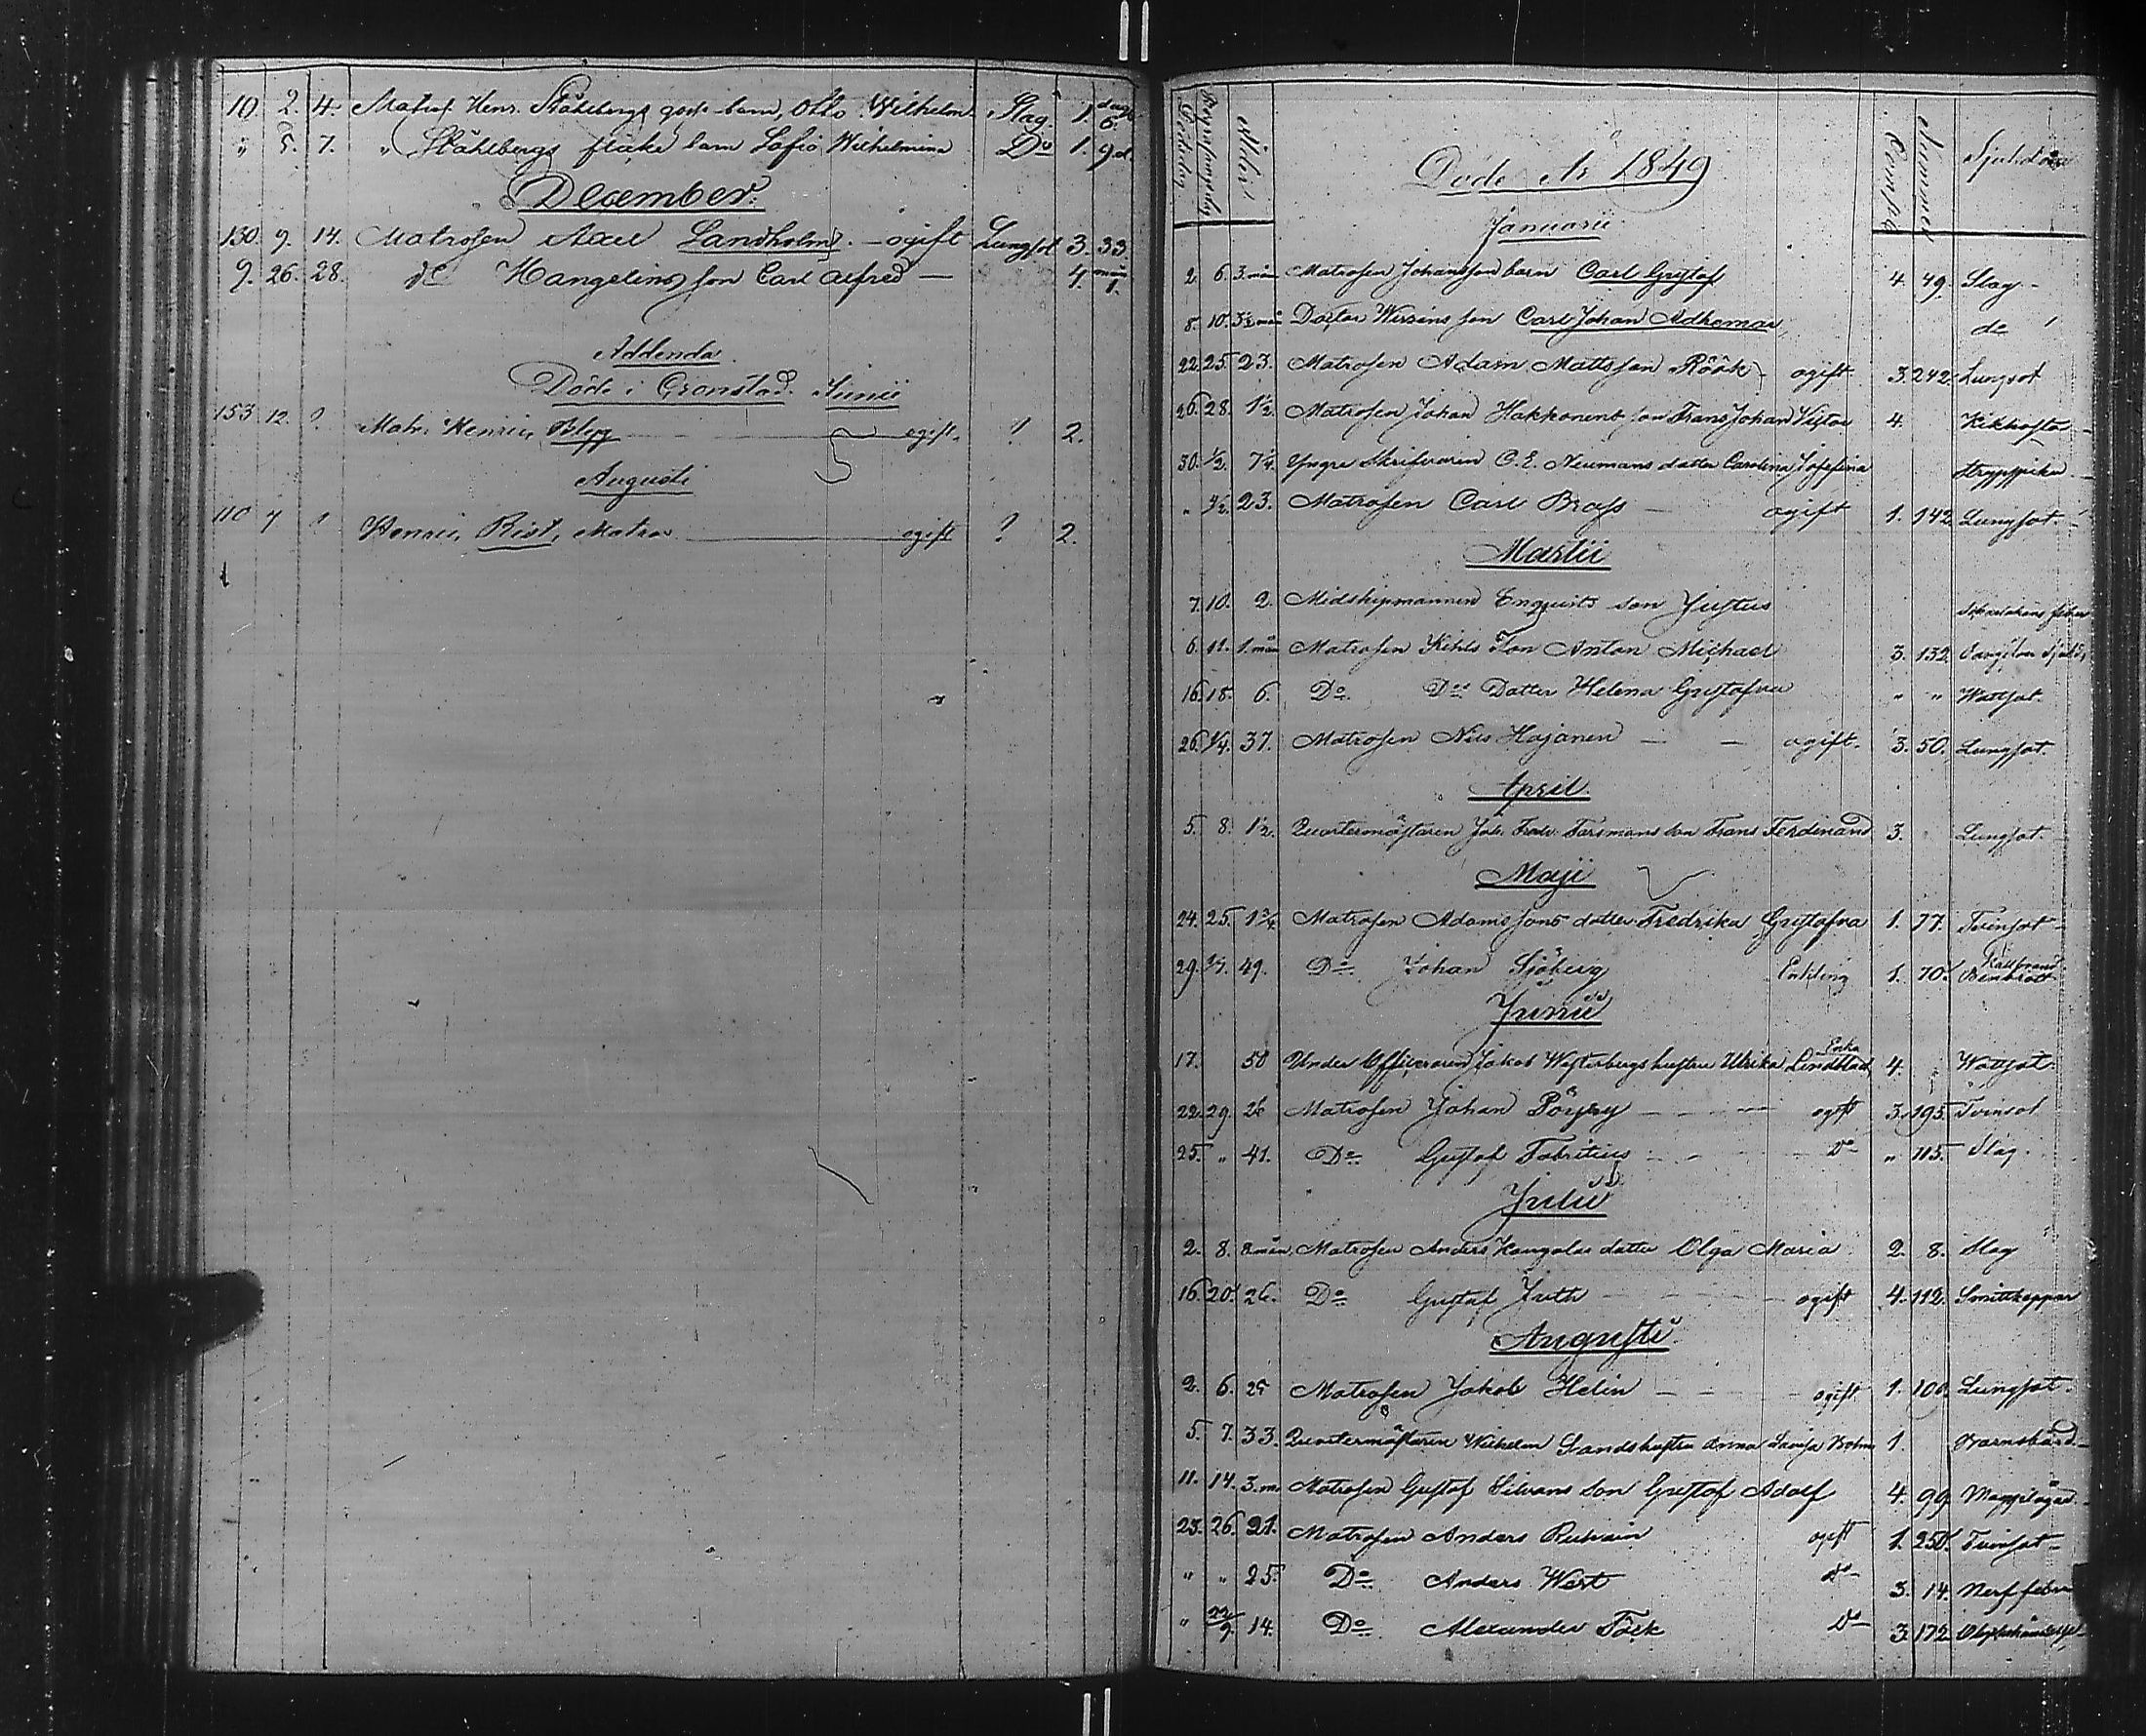 10. 2. 4. Matros Henr. Ståhlbergs goss barn, Otto Wilhelm. Slag. 1. dag. 6.
" 5. 7. " Ståhlbergs flicke barn Sofia Wilhelmina Do 1. 9 d.
December.
130. 9. 14. Matrosen Axel Landholm. — ogift Lungsot 3. 33.
9. 26. 28. do Hangelins son Carl Alfred — 4. mån 1.
Addenda.
Döde i Cronstad. Junii
153 12. ? Matr. Henric Blyg ogift. ? 2.
Augusti
110 7 ? Henric Rist, Matros ogift ? 2.
Dödsdag Begrafningsdag Ålder Döde År 1849 Comp. Nummer Sjukdom
Januarii
2. 6. 3. mån Matrosen Johanssons barn Carl Gustaf 4. 49. Slag -
8. 10. 3½ mån Doctor Wirzéns son Carl Johan Adhemar do
22. 25. 23. Matrosen Adam Mattsson Röök ogift 3. 242. Lungsot
26. 28. 1½ Matrosen Johan Hakkonens son Frans Johan Victor 4. Kikhosta
30. ½. 7¼. Yngre Skrifvaren C. E. Neumans dotter Carolina Josefina Strypsjuka
" 4/2. 23. Matrosen Carl Brass — ogift 1. 142 Lungsot.
Martii
7. 10. 2. Midshipmannen Enquists son Justus feber
6. 11. 1. mån Matrosen Kihls Son Anton Michael 3. 132.
16. 18. 6. Do. Dos Dotter Helena Gustafva " " Wattsot.
26. 1/4. 37. Matrosen Nils Hajanen — — ogift. 3. 50. Lungsot.
April.
5. 8. 1½. Quartermästaren Joh. Fredr. Forsmans son Frans Ferdinand 3. Lungsot.
Maji
24. 25. 1¾. Matrosen Adamssons dotter Fredrika Gustafva 1. 77. Tvinsot
29. 49. Do Johan Sjöberg Enkling 1. 70. Kallbrand Benbrott
Junii
17. 58 Under Officeraren Jakob Westerbergs hustru Ulrika Lindblad Enka 4. Wattsot.
22. 29. 26 Matrosen Johan Pöyry — — — ogift 3. 195. Tvinsot
25. " 41. Do Gustaf Fabritius — — Do " 115. Slag.
Julii
2. 8. 8 mån. Matrosen Anders Kangolas dotter Olga Maria 2. 8. Slag
16. 20. 26. Do Gustaf Juth ogift 4. 112. Smittkoppor
Augusti
2. 6. 25 Matrosen Jakob Helin — — ogift 1. 100. Lungsot.
5. 7. 33. Quartermästaren Wilhelm Sands hustru Anna Lovisa Bohm 1. Barnsbörd
11. 14. 3. m. Matrosen Gustaf Silvans son Gustaf Adolf 4. 99.
23. 26. 21. Matrosen Anders Ruhvain ogift 1. 250. Tvinsot
" " 25. Do Anders West do 3. 14. Nerffeber
" 22/9. 14. Do Alexander Fäck Do 3. 172